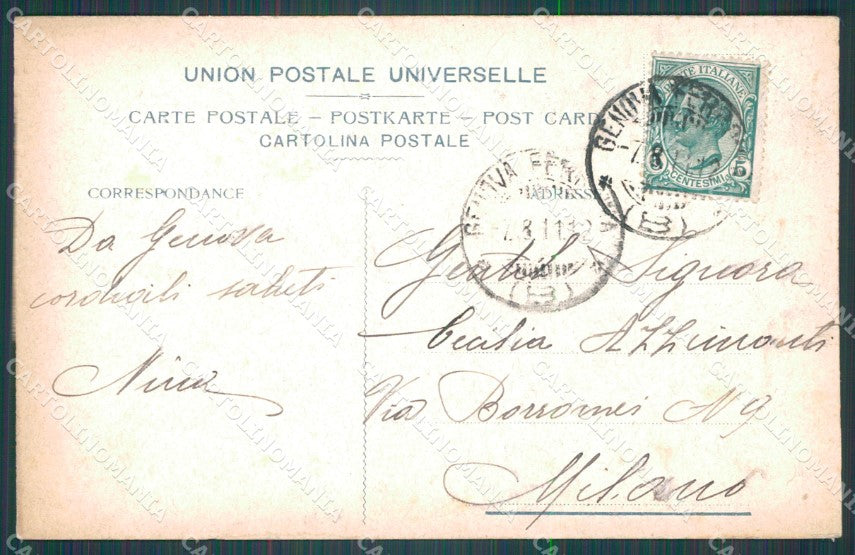 UNION POSTALE UNIVERSELLE
CARTE POSTALE – POSTKARTE – POST CARD
CARTOLINA POSTALE
CORRESPONDANCE
ADRESSE
POSTE ITALIANE
CENTESIMI 5
GENOVA FERROVIA
-7.8.11 12
(B)
GENOVA FERROVIA
-7.8.11
(B)
Da Genova
cordiali saluti
Nina
Gentil Signora
Cecilia Azzimonti
Via Borromei N 9
Milano
CARTOLINOMANIA